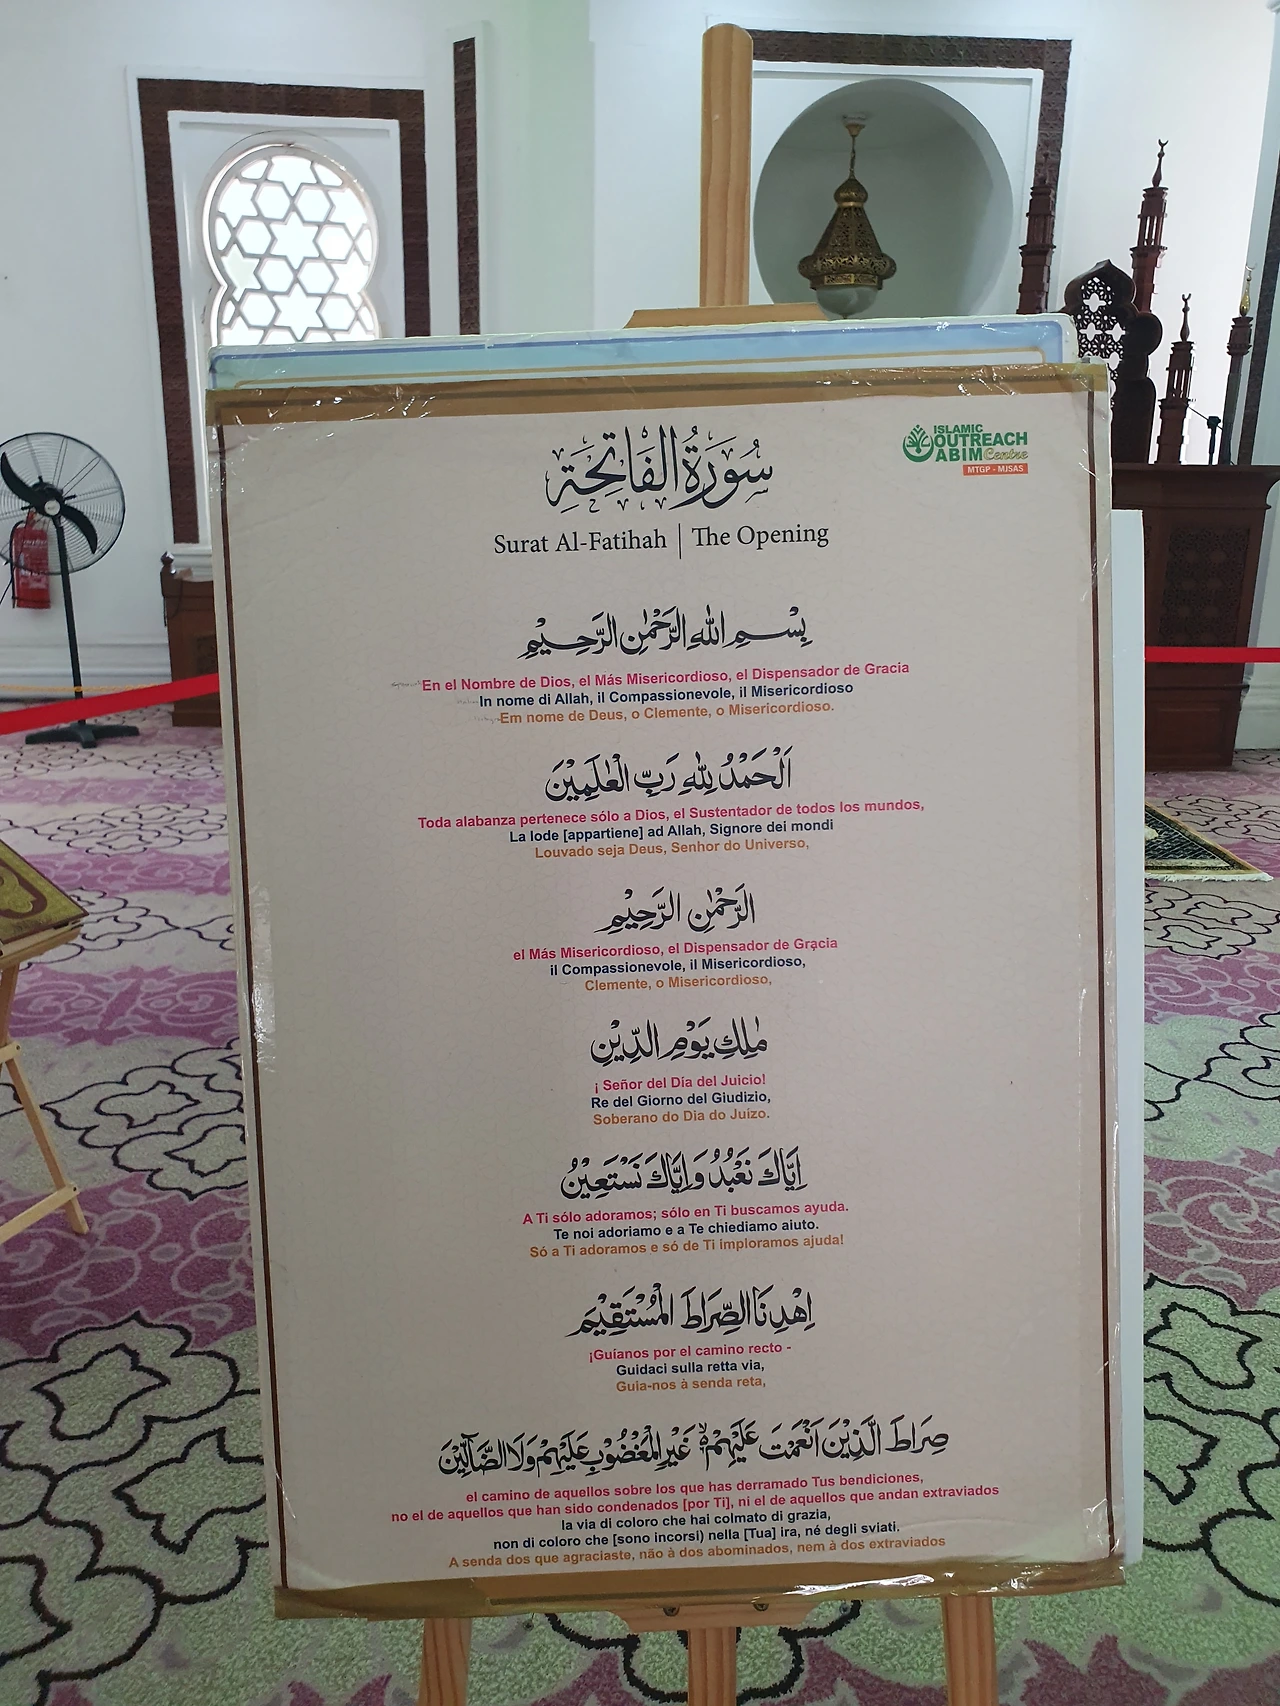 ISLAMIC
OUTREACH
ABIM Centre
MTGP - MJSAS
سُورَةُ الْفَاتِحَةِ
Surat Al-Fatihah | The Opening
بِسْمِ اللهِ الرَّحْمٰنِ الرَّحِيْمِ
En el Nombre de Dios, el Más Misericordioso, el Dispensador de Gracia
In nome di Allah, il Compassionevole, il Misericordioso
Em nome de Deus, o Clemente, o Misericordioso.
اَلْحَمْدُ لِلّٰهِ رَبِّ الْعٰلَمِيْنَ
Toda alabanza pertenece sólo a Dios, el Sustentador de todos los mundos,
La lode [appartiene] ad Allah, Signore dei mondi
Louvado seja Deus, Senhor do Universo,
الرَّحْمٰنِ الرَّحِيْمِ
el Más Misericordioso, el Dispensador de Gracia
il Compassionevole, il Misericordioso,
Clemente, o Misericordioso,
مٰلِكِ يَوْمِ الدِّيْنِ
¡ Señor del Día del Juicio!
Re del Giorno del Giudizio,
Soberano do Dia do Juízo.
اِيَّاكَ نَعْبُدُ وَاِيَّاكَ نَسْتَعِيْنُ
A Ti sólo adoramos; sólo en Ti buscamos ayuda.
Te noi adoriamo e a Te chiediamo aiuto.
Só a Ti adoramos e só de Ti imploramos ajuda!
اِهْدِنَا الصِّرَاطَ الْمُسْتَقِيْمَ
¡Guíanos por el camino recto -
Guidaci sulla retta via,
Guia-nos à senda reta,
صِرَاطَ الَّذِيْنَ اَنْعَمْتَ عَلَيْهِمْ ۙ غَيْرِ الْمَغْضُوْبِ عَلَيْهِمْ وَلَا الضَّآلِّيْنَ
el camino de aquellos sobre los que has derramado Tus bendiciones,
no el de aquellos que han sido condenados [por Ti], ni el de aquellos que andan extraviados
la via di coloro che hai colmato di grazia,
non di coloro che [sono incorsi] nella [Tua] ira, né degli sviati.
A senda dos que agraciaste, não à dos abominados, nem à dos extraviados